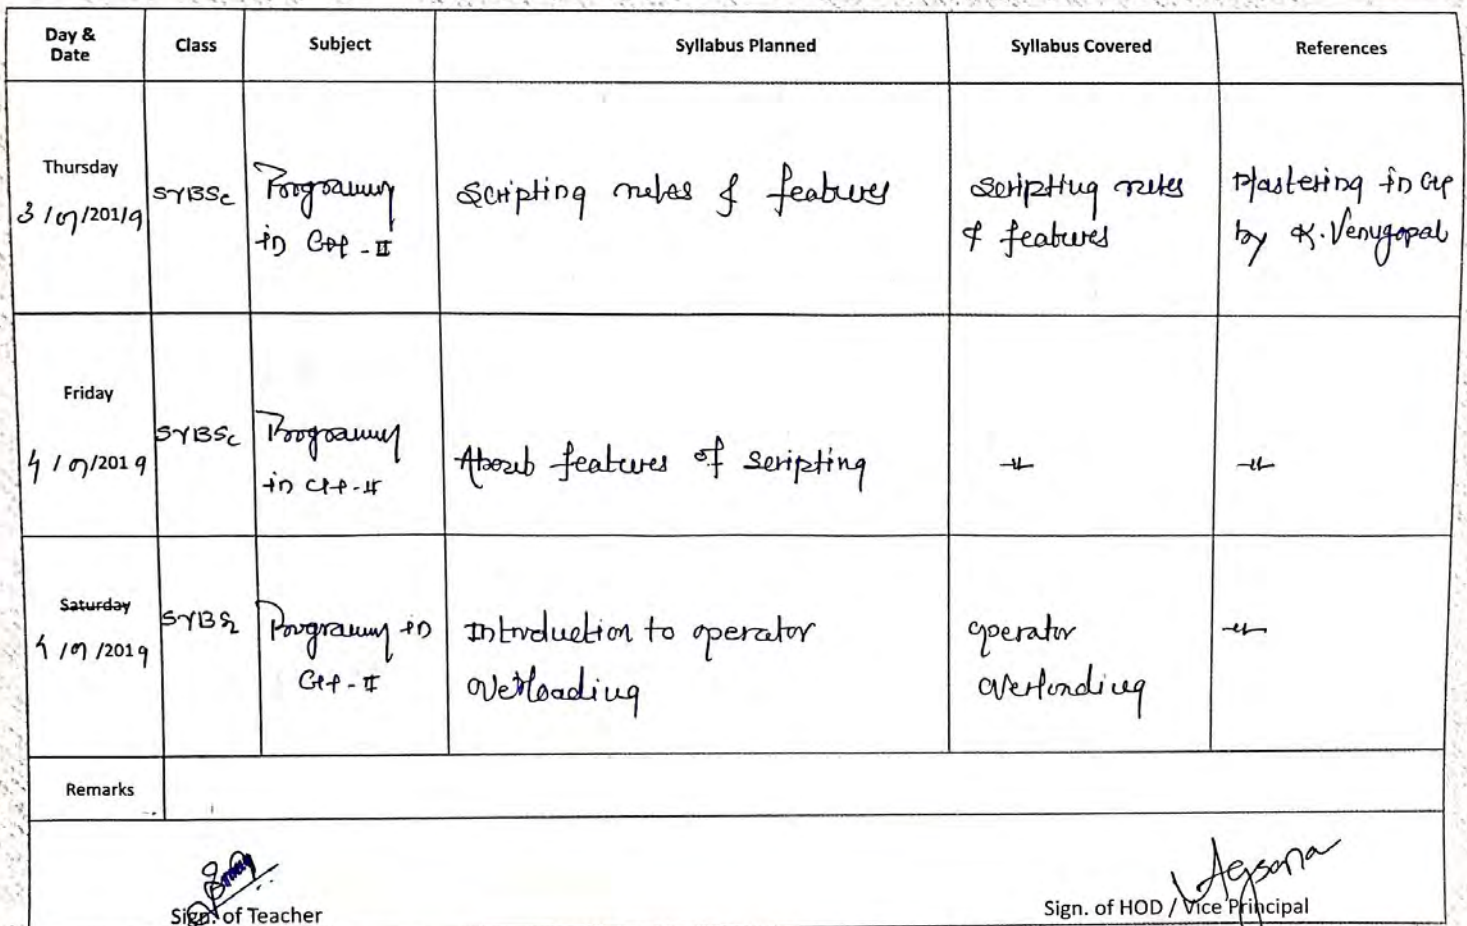 Day &
Date
Class
Subject
Syllabus Planned
Syllabus Covered
References
Thursday
3 / 01 / 2019
SYBSc
Programming
in CPP - II
Scripting rules & features
Scripting rules
& features
Mastering in CPP
by K. Venugopal
Friday
4 / 01 / 2019
SYBSc
Programming
in CPP - II
About features of scripting
-11-
-11-
Saturday
4 / 01 / 2019
SYBSc
Programming in
CPP - II
Introduction to operator
overloading
operator
overloading
-11-
Remarks
Sign. of Teacher
Sign. of HOD / Vice Principal